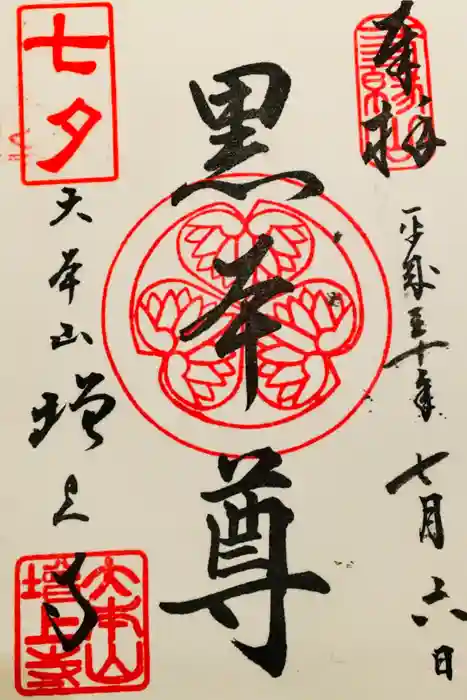 奉拝
三縁山
平成三十年
七月六日
黒本尊
七夕
大本山
増上寺
大本山
増上寺